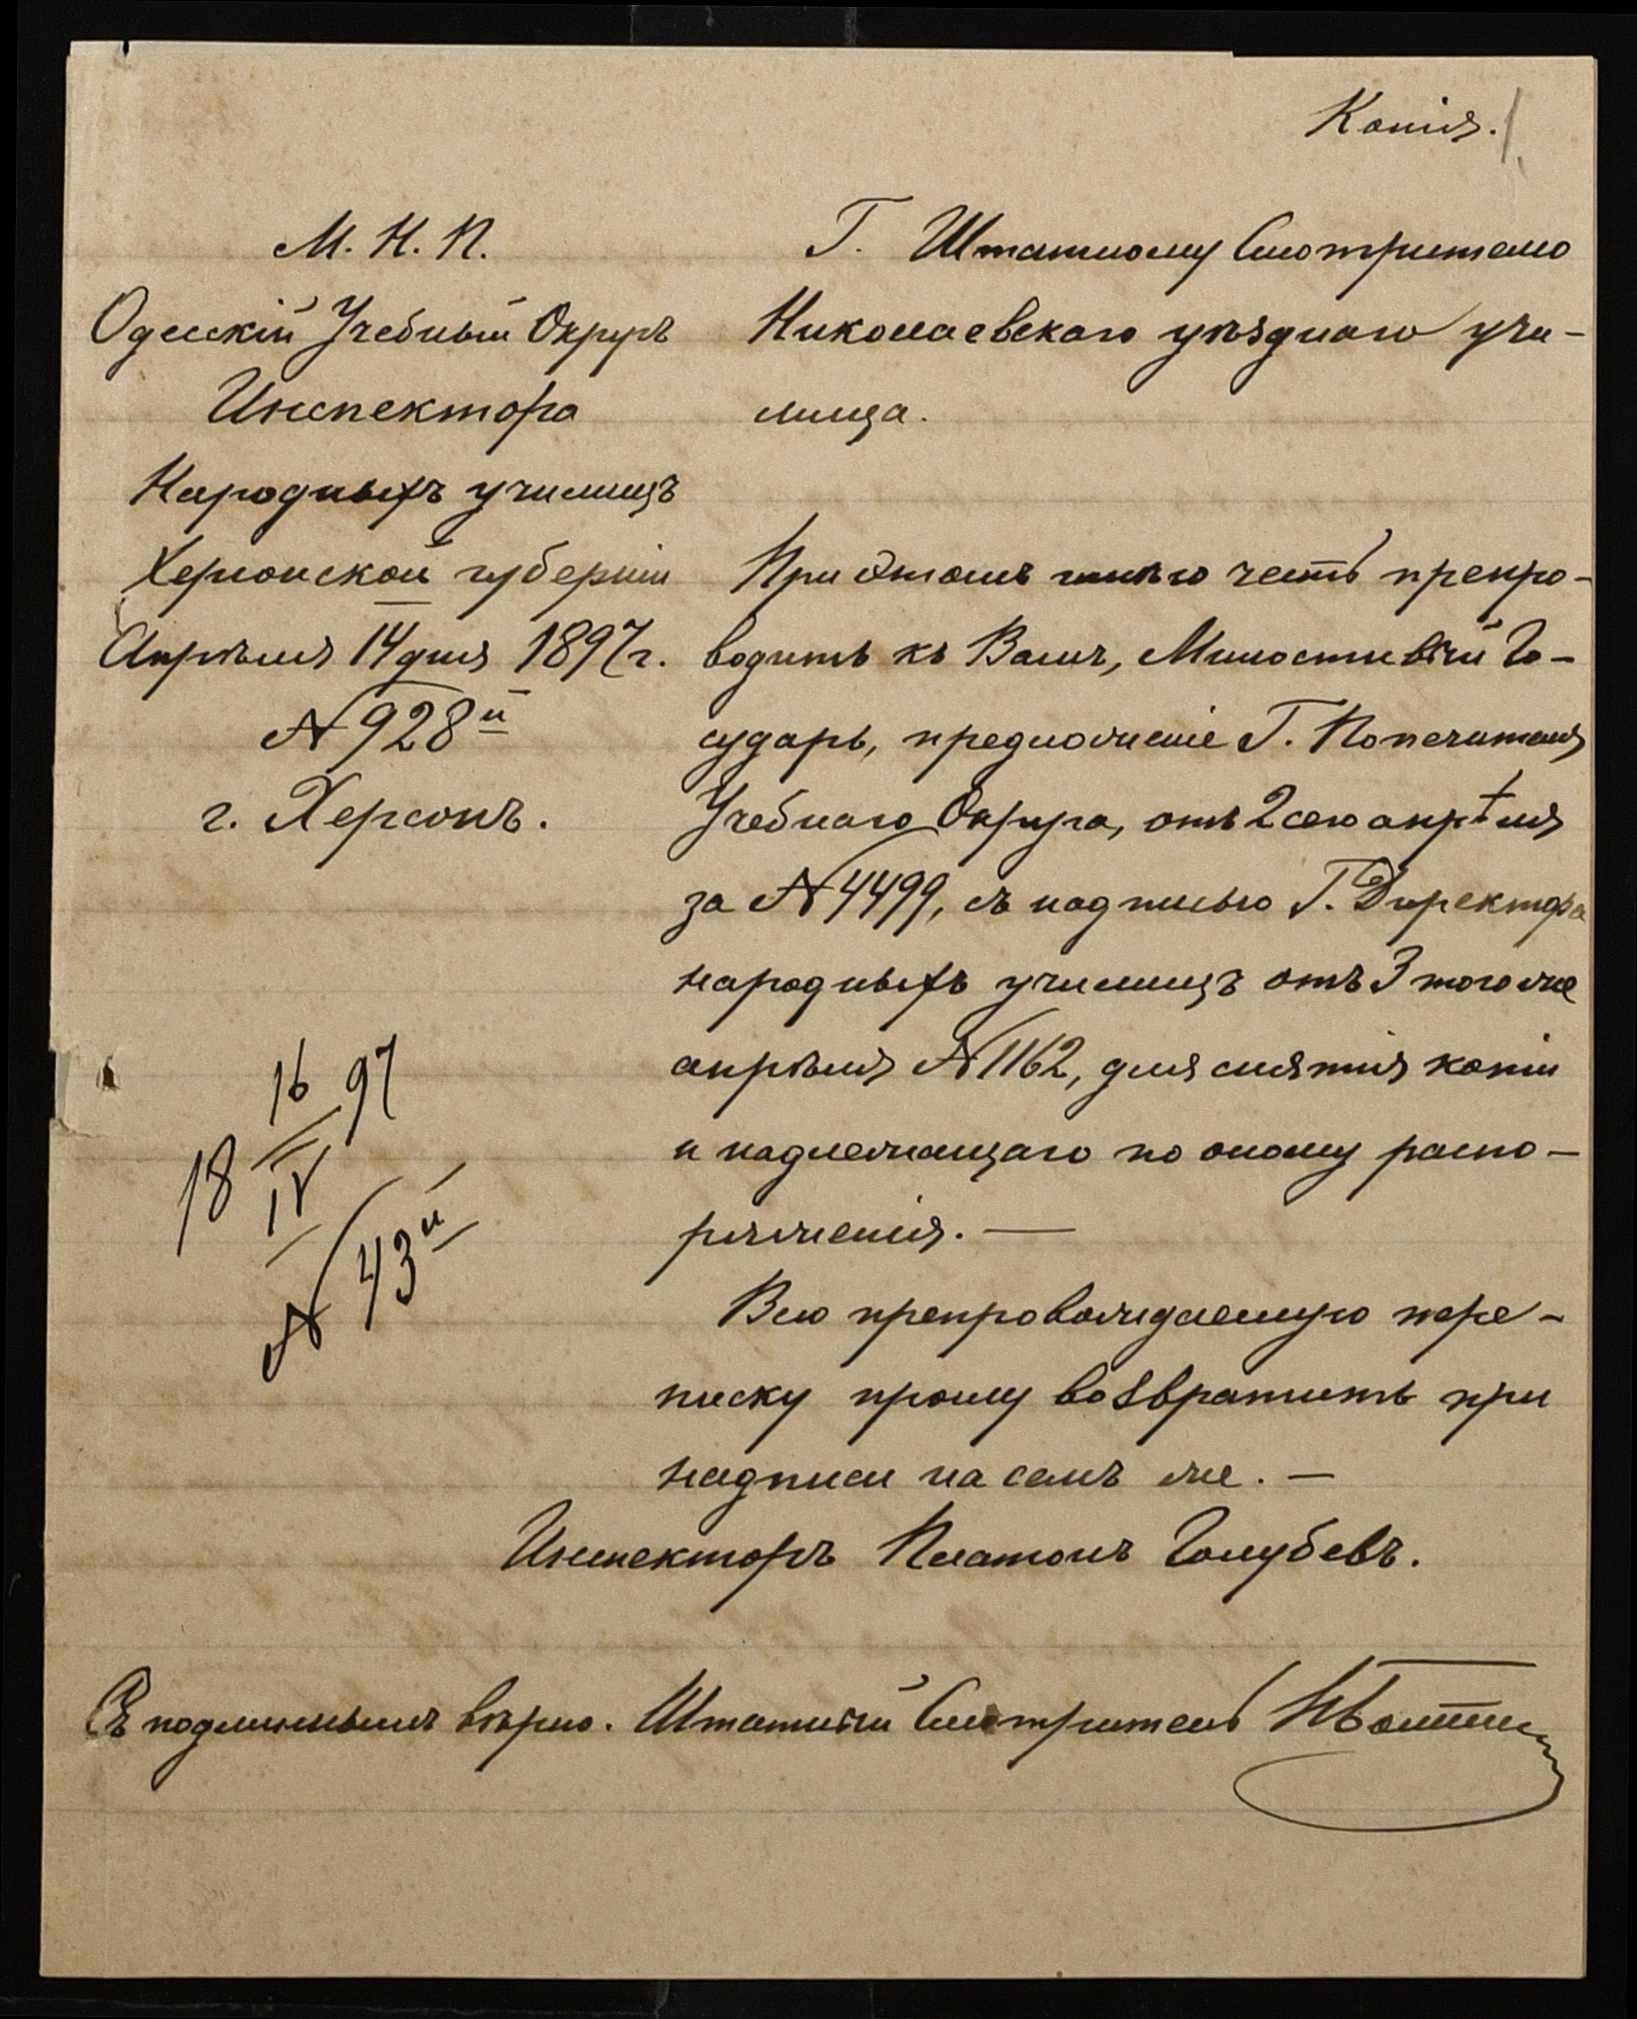 Копія.
М. Н. П.
Одесскій Учебный Округъ
Инспектора
Народныхъ училищъ
Херсонской губерніи
Апрѣля 14 дня 1897 г.
№ 928 й
г. Херсонъ.
16
18 97
IV
№ 43 й
Г. Штатному Смотрителю
Николаевскаго уѣзднаго учи-
лища.
При этомъ имѣю честь препро-
водить къ Вамъ, Милостивый Го-
сударь, предложеніе Г. Попечителя
Учебнаго Округа, отъ 2 сего апрѣля
за № 4499, съ надписью Г. Директора
народныхъ училищъ отъ 3 того же
апрѣля № 1162, для снятія копіи
и надлежащаго по оному распо-
ряженія. —
Всю препровождаемую пере-
писку прошу возвратить при
надписи на семъ же. —
Инспекторъ Платонъ Голубевъ.
Съ подлиннымъ вѣрно. Штатный Смотритель